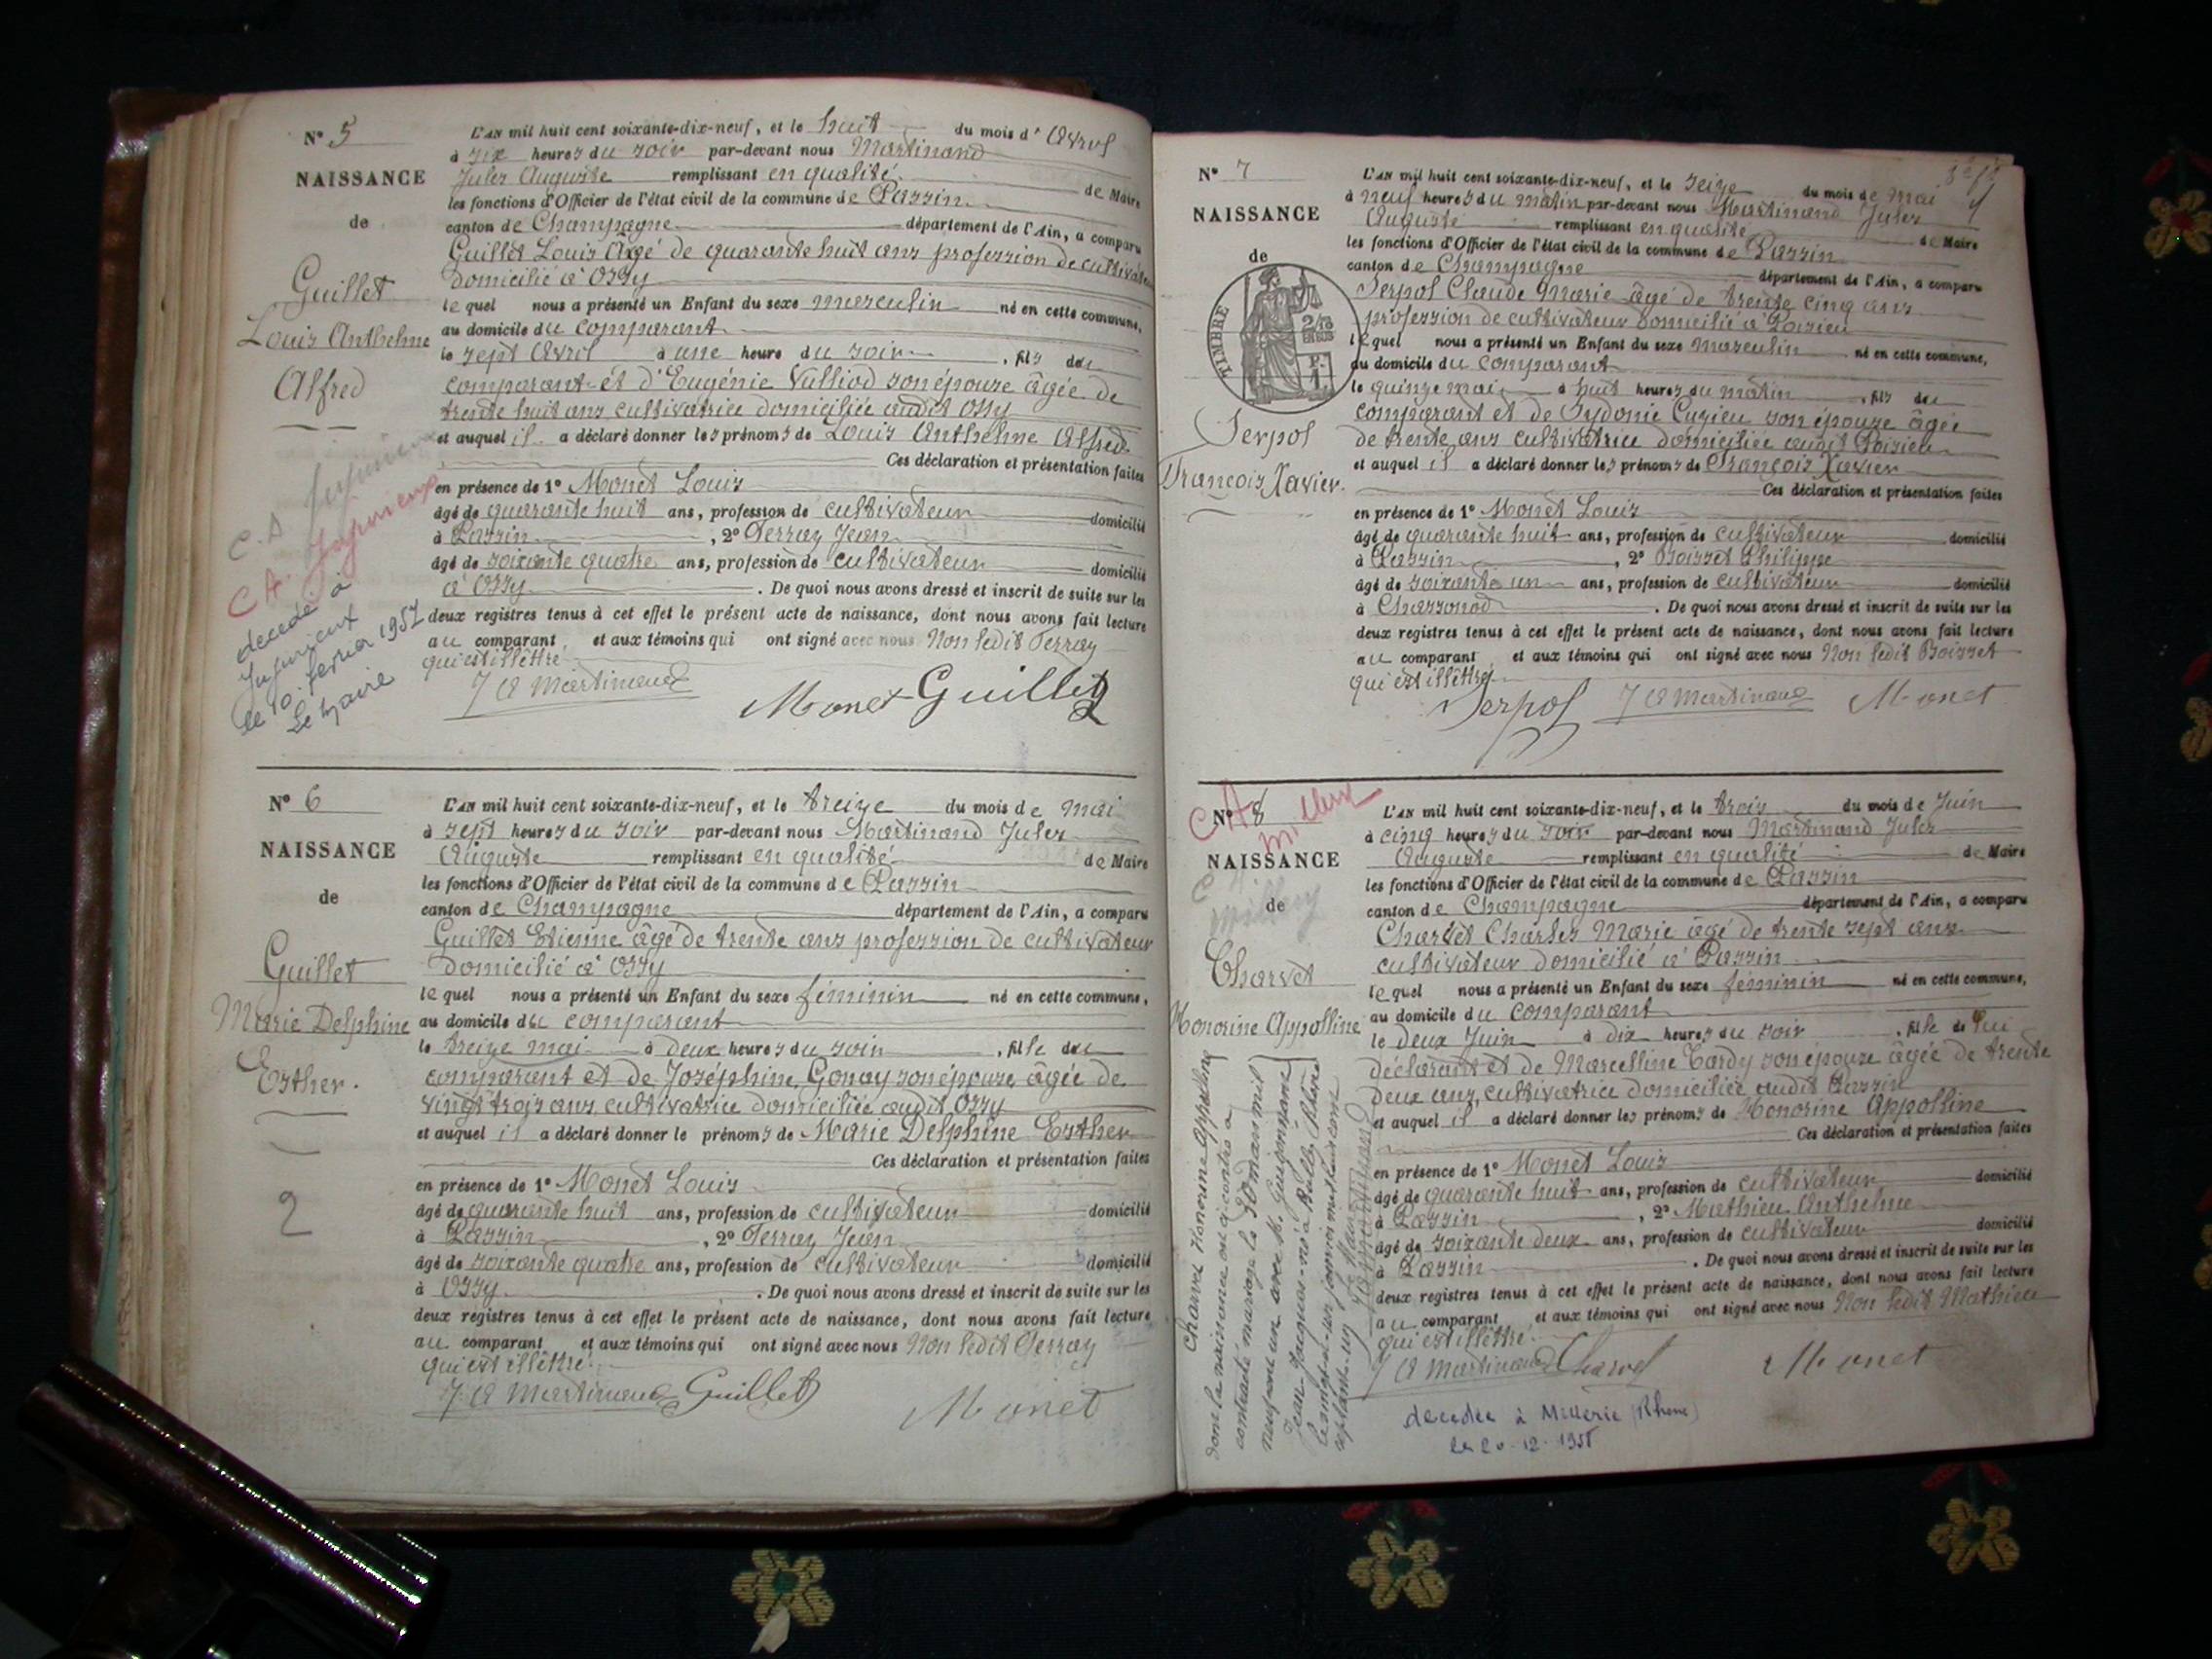 N° 5
NAISSANCE
de
Guillet
Louis Anthelme
Alfred
C. A Jujurieux
C A. Jujurieux
décédé à
Jujurieux
le 10 fevrier 1957
Le Maire
L'AN mil huit cent soixante-dix-neuf, et le huit du mois d'Avril
à six heures du soir par-devant nous Martinand
Jules Auguste remplissant en qualité de Maire
les fonctions d'Officier de l'état civil de la commune de Passin
canton de Champagne département de l'Ain, a comparu
Guillet Louis Agé de quarante huit ans profession de cultivateur
domicilié à Ossy
lequel nous a présenté un Enfant du sexe masculin né en cette commune,
au domicile du comparant
le sept Avril à une heure du soir, fils du
comparant et d'Eugénie Vulliod son épouse âgée de
trente huit ans cultivatrice domiciliée audit Ossy
et auquel il a déclaré donner les prénoms de Louis Anthelme Alfred
Ces déclaration et présentation faites
en présence de 1° Monet Louis
âgé de quarante huit ans, profession de cultivateur domicilié
à Passin, 2° Terray Jean
âgé de soixante quatre ans, profession de cultivateur domicilié
à Ossy. De quoi nous avons dressé et inscrit de suite sur les
deux registres tenus à cet effet le présent acte de naissance, dont nous avons fait lecture
au comparant et aux témoins qui ont signé avec nous Non ledit Terray
qui est illêttré
J A Martinand Monet Guillet
N° 6
NAISSANCE
de
Guillet
Marie Delphine
Esther.
2
L'AN mil huit cent soixante-dix-neuf, et le treize du mois de Mai
à sept heures du soir par-devant nous Martinand Jules
Auguste remplissant en qualité de Maire
les fonctions d'Officier de l'état civil de la commune de Passin
canton de Champagne département de l'Ain, a comparu
Guillet Etienne âgé de trente ans profession de cultivateur
domicilié à Ossy
lequel nous a présenté un Enfant du sexe féminin né en cette commune,
au domicile du comparant
le treize mai à deux heures du soir, fille du
comparant et de Joséphine Gonay son épouse âgée de
vingt trois ans cultivatrice domiciliée audit Ossy
et auquel il a déclaré donner le prénoms de Marie Delphine Esther
Ces déclaration et présentation faites
en présence de 1° Monet Louis
âgé de quarante huit ans, profession de cultivateur domicilié
à Passin, 2° Terray Jean
âgé de soixante quatre ans, profession de cultivateur domicilié
à Ossy. De quoi nous avons dressé et inscrit de suite sur les
deux registres tenus à cet effet le présent acte de naissance, dont nous avons fait lecture
au comparant et aux témoins qui ont signé avec nous Non ledit Terray
qui est illêttré
J A Martinand Guillet Monet
N° 7
NAISSANCE
de
TIMBRE
Serpol
François Xavier.
L'AN mil huit cent soixante-dix-neuf, et le seize du mois de mai
à neuf heures du matin par-devant nous Martinand Jules
Auguste remplissant en qualité de Maire
les fonctions d'Officier de l'état civil de la commune de Passin
canton de Champagne département de l'Ain, a comparu
Serpol Claude Marie âgé de trente cinq ans
profession de cultivateur domicilié à Poisieu
lequel nous a présenté un Enfant du sexe masculin né en cette commune,
au domicile du comparant
le quinze mai à huit heures du matin, fils du
comparant et de Sydonie Cuzieu son épouse âgée
de trente ans cultivatrice domiciliée audit Poisieu
et auquel il a déclaré donner les prénoms de François Xavier
Ces déclaration et présentation faites
en présence de 1° Monet Louis
âgé de quarante huit ans, profession de cultivateur domicilié
à Passin, 2° Boisset Philippe
âgé de soixante un ans, profession de cultivateur domicilié
à Chassonod. De quoi nous avons dressé et inscrit de suite sur les
deux registres tenus à cet effet le présent acte de naissance, dont nous avons fait lecture
au comparant et aux témoins qui ont signé avec nous Non ledit Boisset
qui est illêttré
Serpol J A Martinand Monet
N° 8
C A
NAISSANCE
de
Charvet
Honorine Appolline
Charvet Honorine Appolline
dont la naissance est ci-contre a
contracté mariage le 30 mars mil
neuf cent un avec M. Guignepane
Jean-Jacques né à
L'AN mil huit cent soixante-dix-neuf, et le trois du mois de Juin
à cinq heures du soir par-devant nous Martinand Jules
Auguste remplissant en qualité de Maire
les fonctions d'Officier de l'état civil de la commune de Passin
canton de Champagne département de l'Ain, a comparu
Charvet Charles Marie âgé de trente sept ans
cultivateur domicilié à Passin
lequel nous a présenté un Enfant du sexe féminin né en cette commune,
au domicile du comparant
le deux Juin à dix heures du soir, fille de lui
déclarant et de Marcelline Tardy son épouse âgée de trente
deux ans, cultivatrice domiciliée audit Passin
et auquel il a déclaré donner les prénoms de Honorine Appolline
Ces déclaration et présentation faites
en présence de 1° Monet Louis
âgé de quarante huit ans, profession de cultivateur domicilié
à Passin, 2° Mathieu Anthelme
âgé de soixante deux ans, profession de cultivateur domicilié
à Passin. De quoi nous avons dressé et inscrit de suite sur les
deux registres tenus à cet effet le présent acte de naissance, dont nous avons fait lecture
au comparant et aux témoins qui ont signé avec nous Non ledit Mathieu
qui est illêttré
J A Martinand Charvet Monet
décédée à Millerie (Rhone)
le 20-12-1955